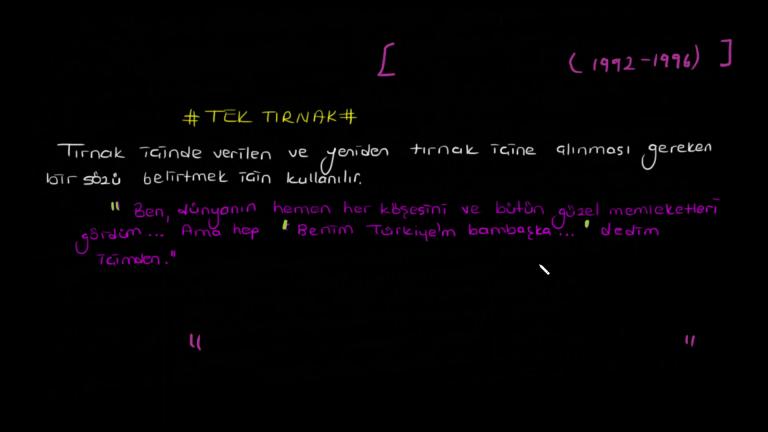 [ (1992-1996) ]
# TEK TIRNAK #
Tırnak içinde verilen ve yeniden tırnak içine alınması gereken
bir sözü belirtmek için kullanılır.
" Ben, dünyanın hemen her köşesini ve bütün güzel memleketleri
gördüm... Ama hep ' Benim Türkiye'm bambaşka... ' dedim
içimden."
" "